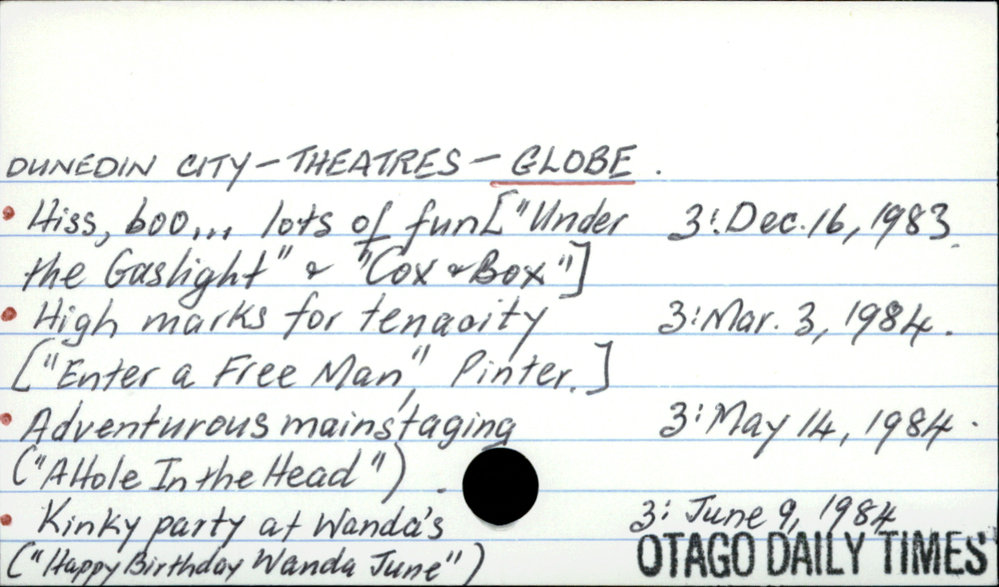 DUNEDIN CITY - THEATRES - GLOBE.
• Hiss, boo... lots of fun ["Under 3: Dec. 16, 1983.
the Gaslight" & "Cox & Box"]
• High marks for tenacity 3: Mar. 3, 1984.
["Enter a Free Man," Pinter.]
• Adventurous mainstaging 3: May 14, 1984.
("A Hole In the Head").
• Kinky party at Wanda's 3: June 9, 1984
("Happy Birthday Wanda June")
OTAGO DAILY TIMES